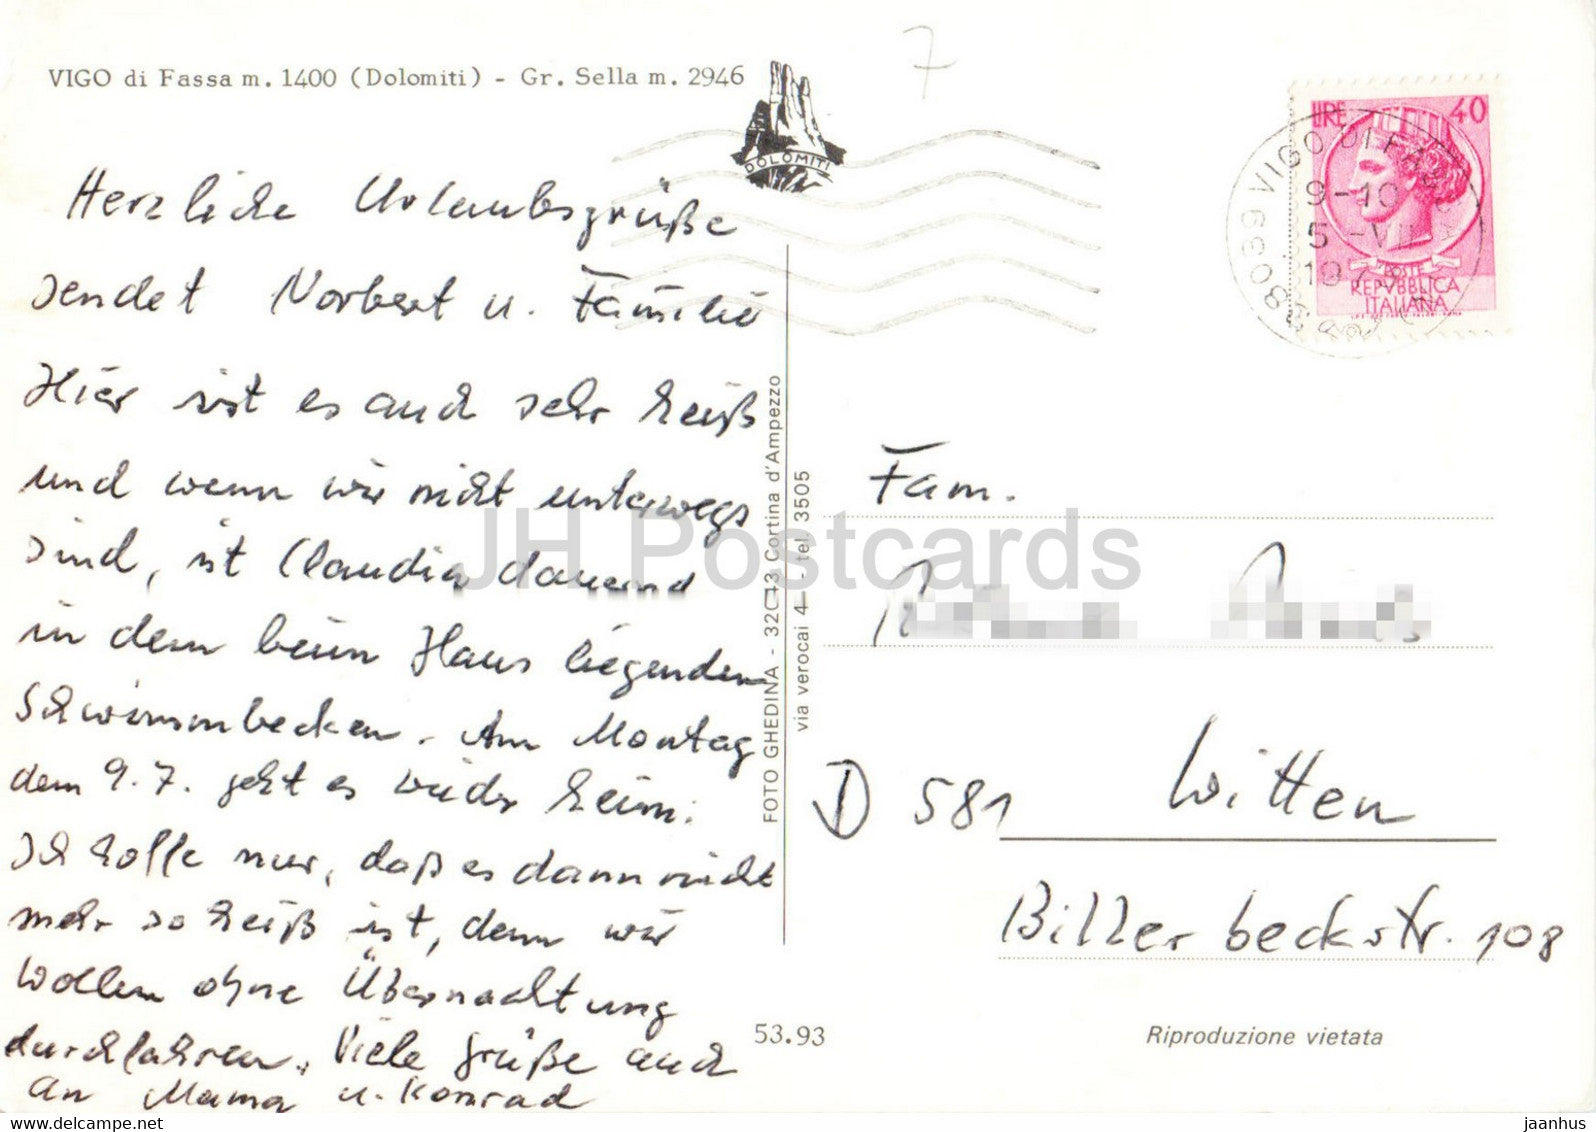 7
VIGO di Fassa m. 1400 (Dolomiti) - Gr. Sella m. 2946
DOLOMITI
LIRE 40
POSTE
REPVBBLICA
ITALIANA
38039 VIGO DI FASSA
9-10
5 -VII
197
Herzliche Urlaubsgrüße
sendet Norbert u. Familie
Hier ist es auch sehr heiß
und wenn wir nicht unterwegs
sind, ist Claudia dauernd
in dem beim Haus liegenden
Schwimmbecken. Am Montag
dem 9.7. geht es wieder heim.
Ich hoffe nur, daß es dann nicht
mehr so heiß ist, denn wir
wollen ohne Übernachtung
durchfahren. Viele Grüße auch
an Mama u. Konrad
FOTO GHEDINA - 32043 Cortina d'Ampezzo
via verocai 4 - tel. 3505
Fam.
D 581 Witten
Billerbeckstr. 108
53.93
Riproduzione vietata
JH Postcards
www.delcampe.net
jaanhus